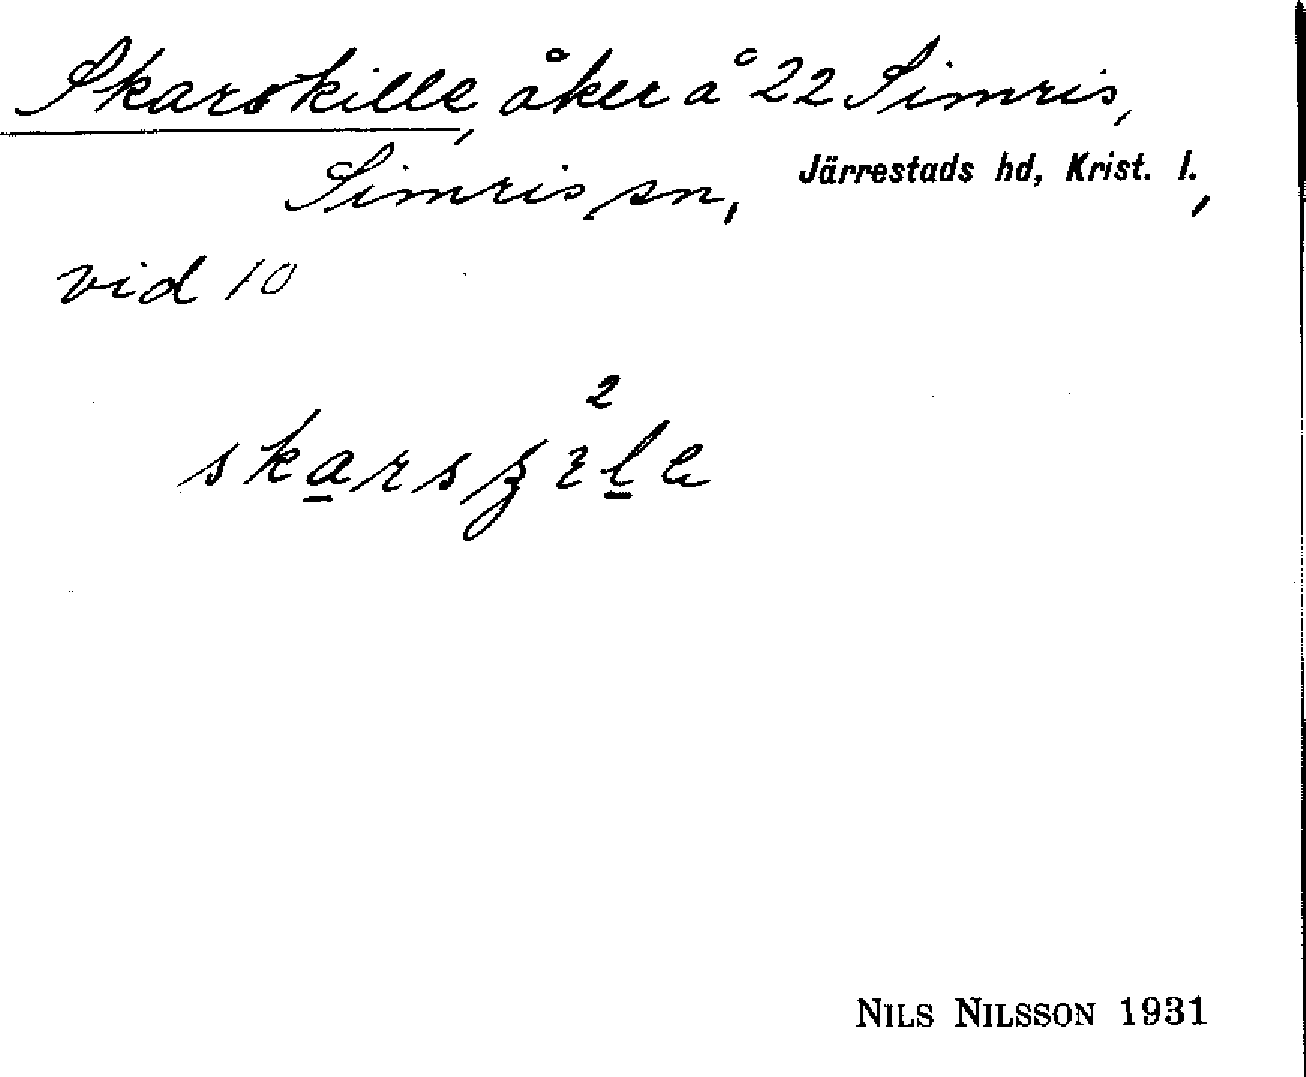 Skarskille, åker å 22 Simris,
Simris sn, Järrestads hd, Krist. l.,
vid 10
2
NILS NILSSON 1931